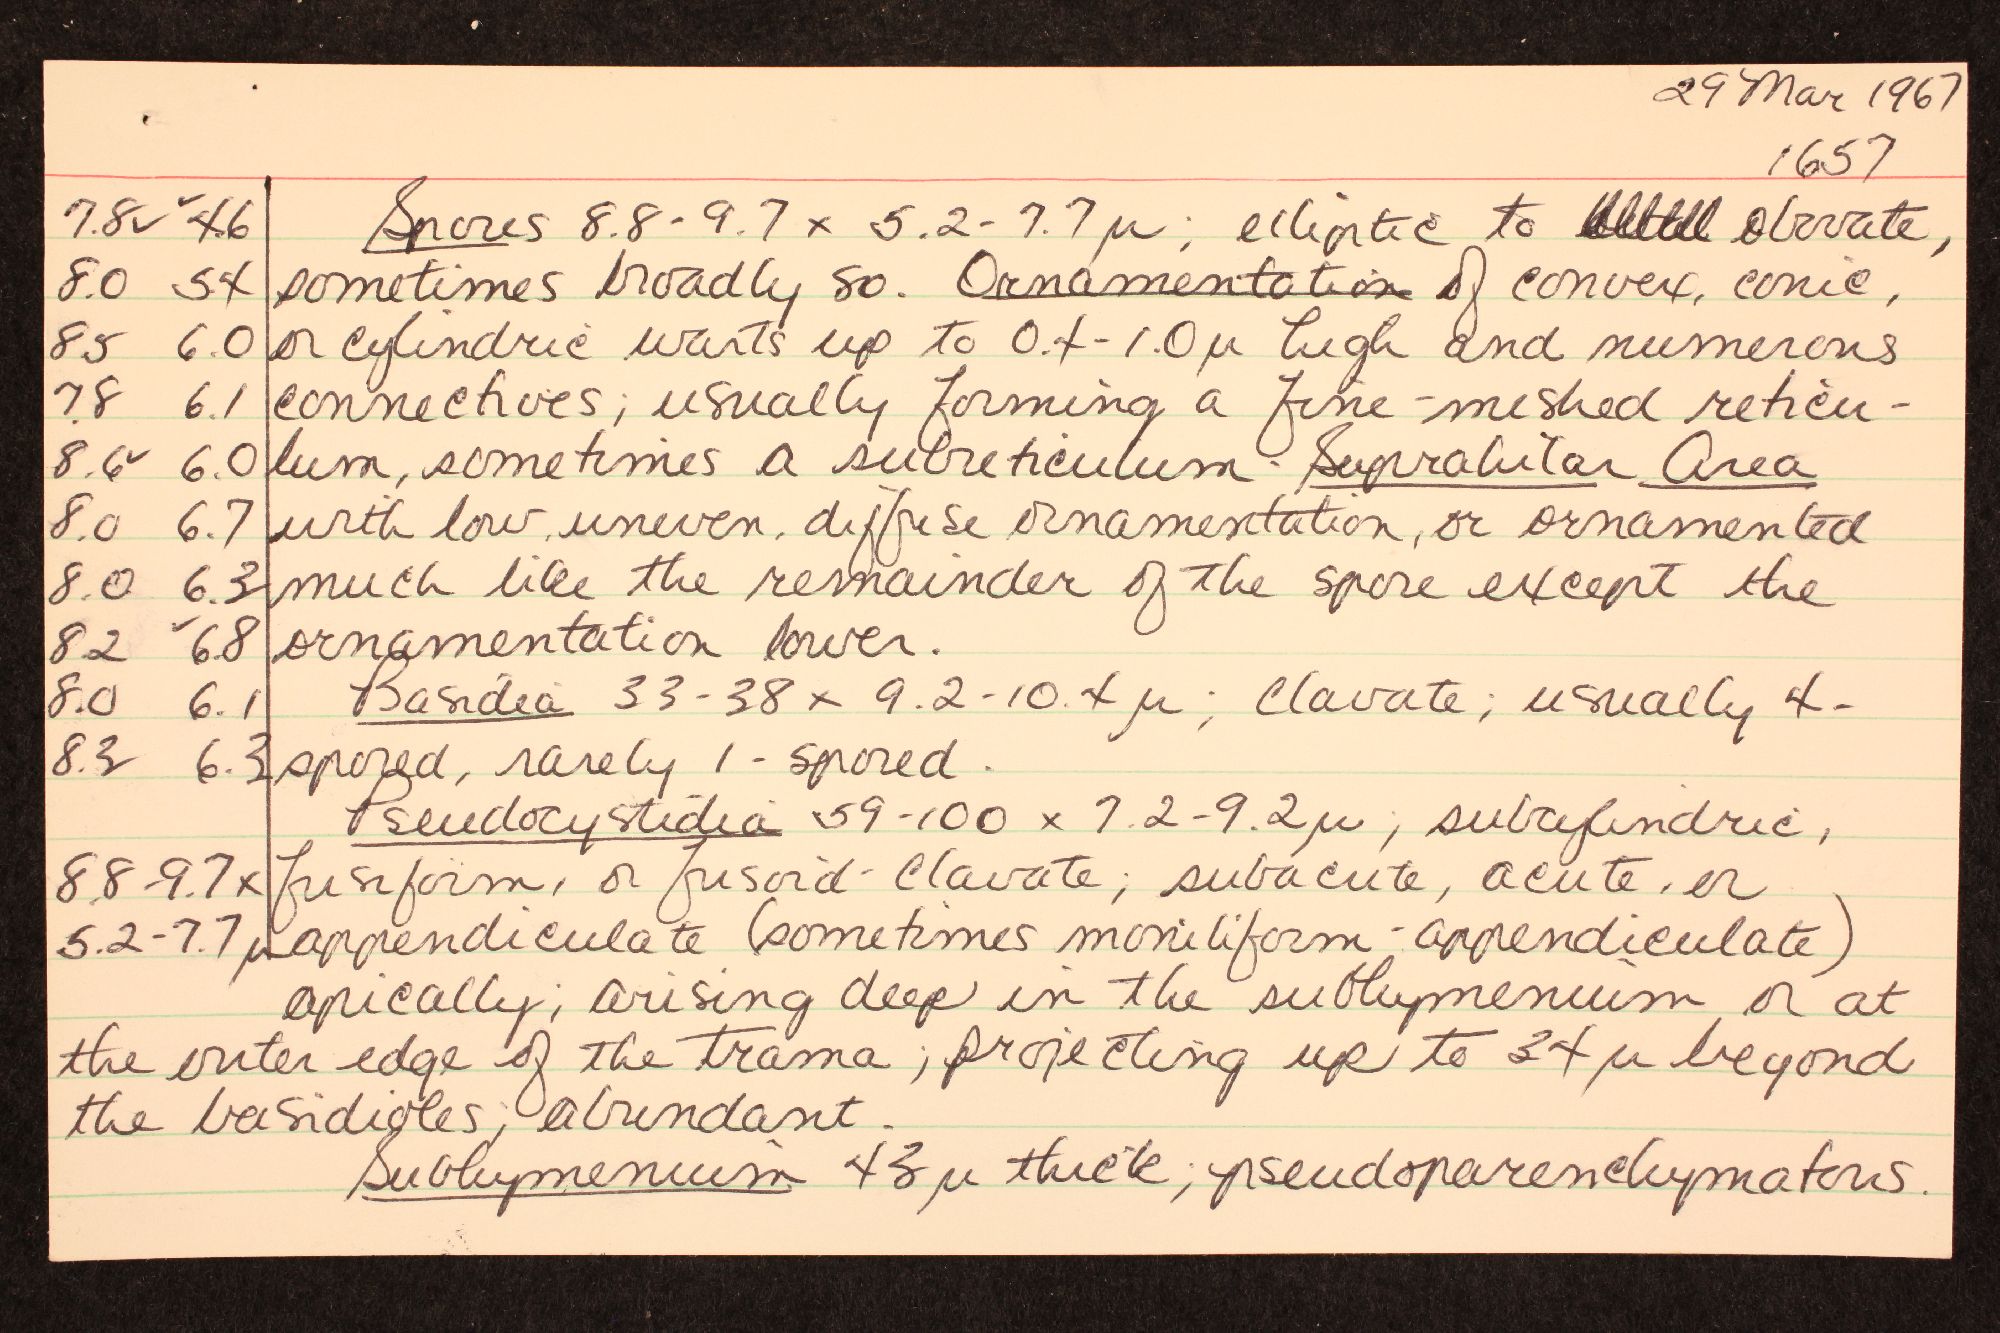 29 Mar 1967
1657
7.8✓ ✓4.6 Spores 8.8-9.7 x 5.2-7.7 µ; elliptic to obovate,
8.0 5.4 sometimes broadly so. Ornamentation of convex, conic,
8.5 6.0 or cylindric warts up to 0.4-1.0 µ high and numerous
7.8 6.1 connectives; usually forming a fine-meshed reticu-
8.6✓ 6.0 lum, sometimes a subreticulum. Suprahilar Area
8.0 6.7 with low, uneven, diffuse ornamentation, or ornamented
8.0 6.3 much like the remainder of the spore except the
8.2 ✓6.8 ornamentation lower.
8.0 6.1 Basidia 33-38 x 9.2-10.4 µ; clavate; usually 4-
8.3 6.3 spored, rarely 1-spored.
Pseudocystidia 59-100 x 7.2-9.2 µ; subcylindric,
8.8-9.7 x fusiform, or fusoid-clavate; subacute, acute, or
5.2-7.7 µ appendiculate (sometimes moniliform-appendiculate)
apically; arising deep in the subhymenium or at
the outer edge of the trama; projecting up to 34 µ beyond
the basidioles; abundant.
Subhymenium 43 µ thick; pseudoparenchymatous.